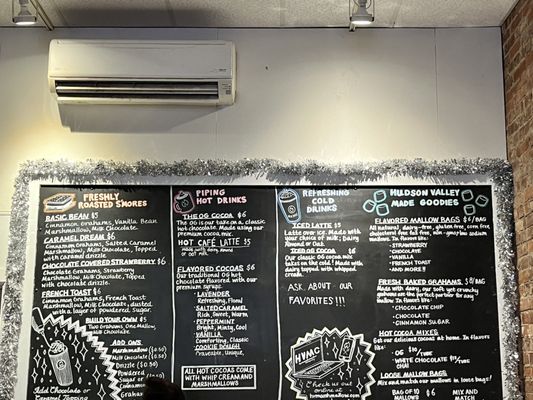 FRESHLY
ROASTED S'MORES
BASIC BEAN $5
Cinnamon Grahams, Vanilla Bean
Marshmallow, Milk Chocolate
CARAMEL DREAM $6
Cinnamon Grahams, Salted Caramel
Marshmallow, Milk Chocolate, Topped
with caramel drizzle
CHOCOLATE COVERED STRAWBERRY $6
Chocolate Grahams, Strawberry
Marshmallow, Milk Chocolate, Topped
with chocolate drizzle
FRENCH TOAST $6
Cinnamon Grahams, French Toast
Marshmallow, Milk Chocolate, dusted
with a layer of powdered sugar
BUILD YOUR OWN $5
Two Grahams, One Mallow,
Milk Chocolate
ADD ONS
Marshmallow ($0.50)
Milk Chocolate ($0.50)
Drizzle ($0.50)
Powdered
Sugar
Cinnamon
Sugar
Grahams
Add Caramel
or Caramel Topping
PIPING
HOT DRINKS
THE OG COCOA $6
The OG is our take on a classic
hot chocolate. Made using our
premium cocoa mix.
HOT CAFÉ LATTE $5
made with dairy
or oat milk
FLAVORED COCOAS $6
Our traditional OG hot
chocolate flavored with our
premium syrups.
- LAVENDER
Refreshing, Floral
- SALTED CARAMEL
Rich, Sweet, Warm
- PEPPERMINT
Bright, Minty, Cool
- VANILLA
Comforting, Classic
- COOKIE DOUGH
Flavorable, Unique
ALL HOT COCOAS COME
WITH WHIP CREAM AND
MARSHMALLOWS
REFRESHING
COLD
DRINKS
ICED LATTE $5
Latte over ice. Made with
your choice of milk: Dairy
Almond or Oat
ICED OG COCOA $6
Our classic OG cocoa mix
takes on the cold! Made with
dairy topped with whipped
cream.
ASK ABOUT OUR
FAVORITES!!!
HVMC
Check us out
online at
hvmarshmallow.com
HUDSON VALLEY
MADE GOODIES
FLAVORED MALLOW BAGS $8/BAG
All natural, dairy-free, gluten free, corn free,
- STRAWBERRY
- CHOCOLATE
- VANILLA
- FRENCH TOAST
- AND MORE!!
FRESH BAKED GRAHAMS $8/BAG
Made with dairy, our soft yet crunchy
grahams are the perfect partner for any
mallow. In flavors like:
- CHOCOLATE CHIP
- CHOCOLATE
- CINNAMON SUGAR
HOT COCOA MIXES
Get our delicious cocoas at home in flavors
like:
- OG $10/TUBE
- WHITE CHOCOLATE
LOOSE MALLOW BAGS
Mix and match our mallows in loose bags!
BAG OF 10 $6 MIX AND
MALLOWS MATCH